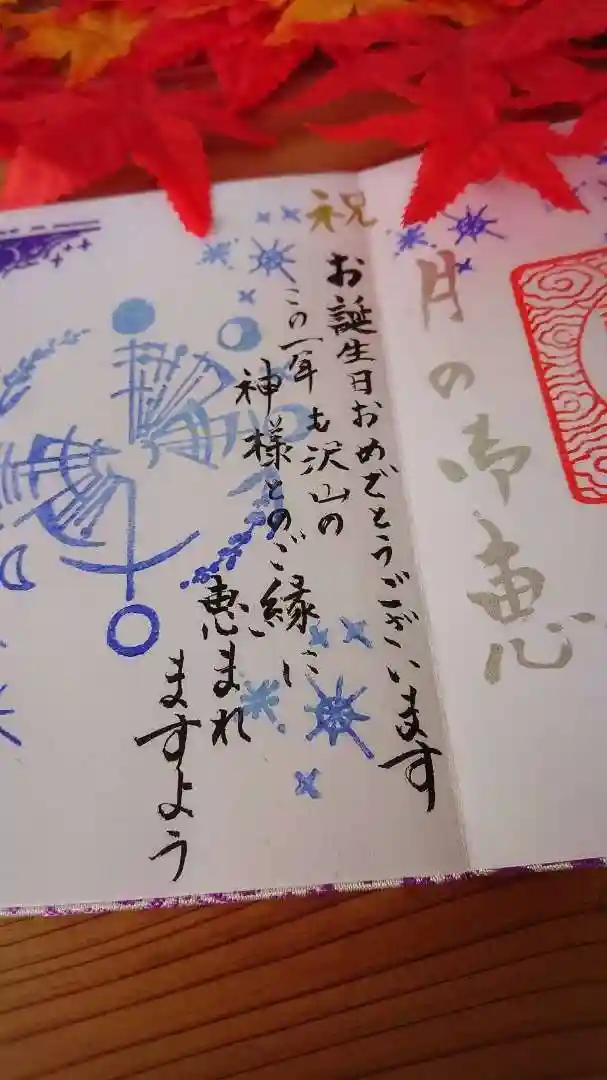 月の御恵
祝
お誕生日おめでとうございます
この一年も沢山の
神様とのご縁に
恵まれ
ますよう